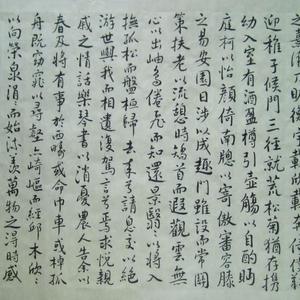 迎稚子候門三徑就荒松菊猶存攜
幼入室有酒盈樽引壺觴以自酌眄
庭柯以怡顏倚南窗寄傲審容膝
之易安園日涉以成趣門雖設而常關
策扶老以流憩時矯首而遐觀雲無
心以出岫鳥倦飛而知還景翳翳以將入
撫孤松而盤桓歸去來兮請息交以絕
游世與我而相遺復駕言兮焉求悅親
戚之情話樂琴書以消憂農人告余以
春及將有事於西疇或命巾車或棹孤
舟既窈窕尋壑亦崎嶇而經邱木欣欣
以向榮泉涓涓而始流羨萬物之得時感